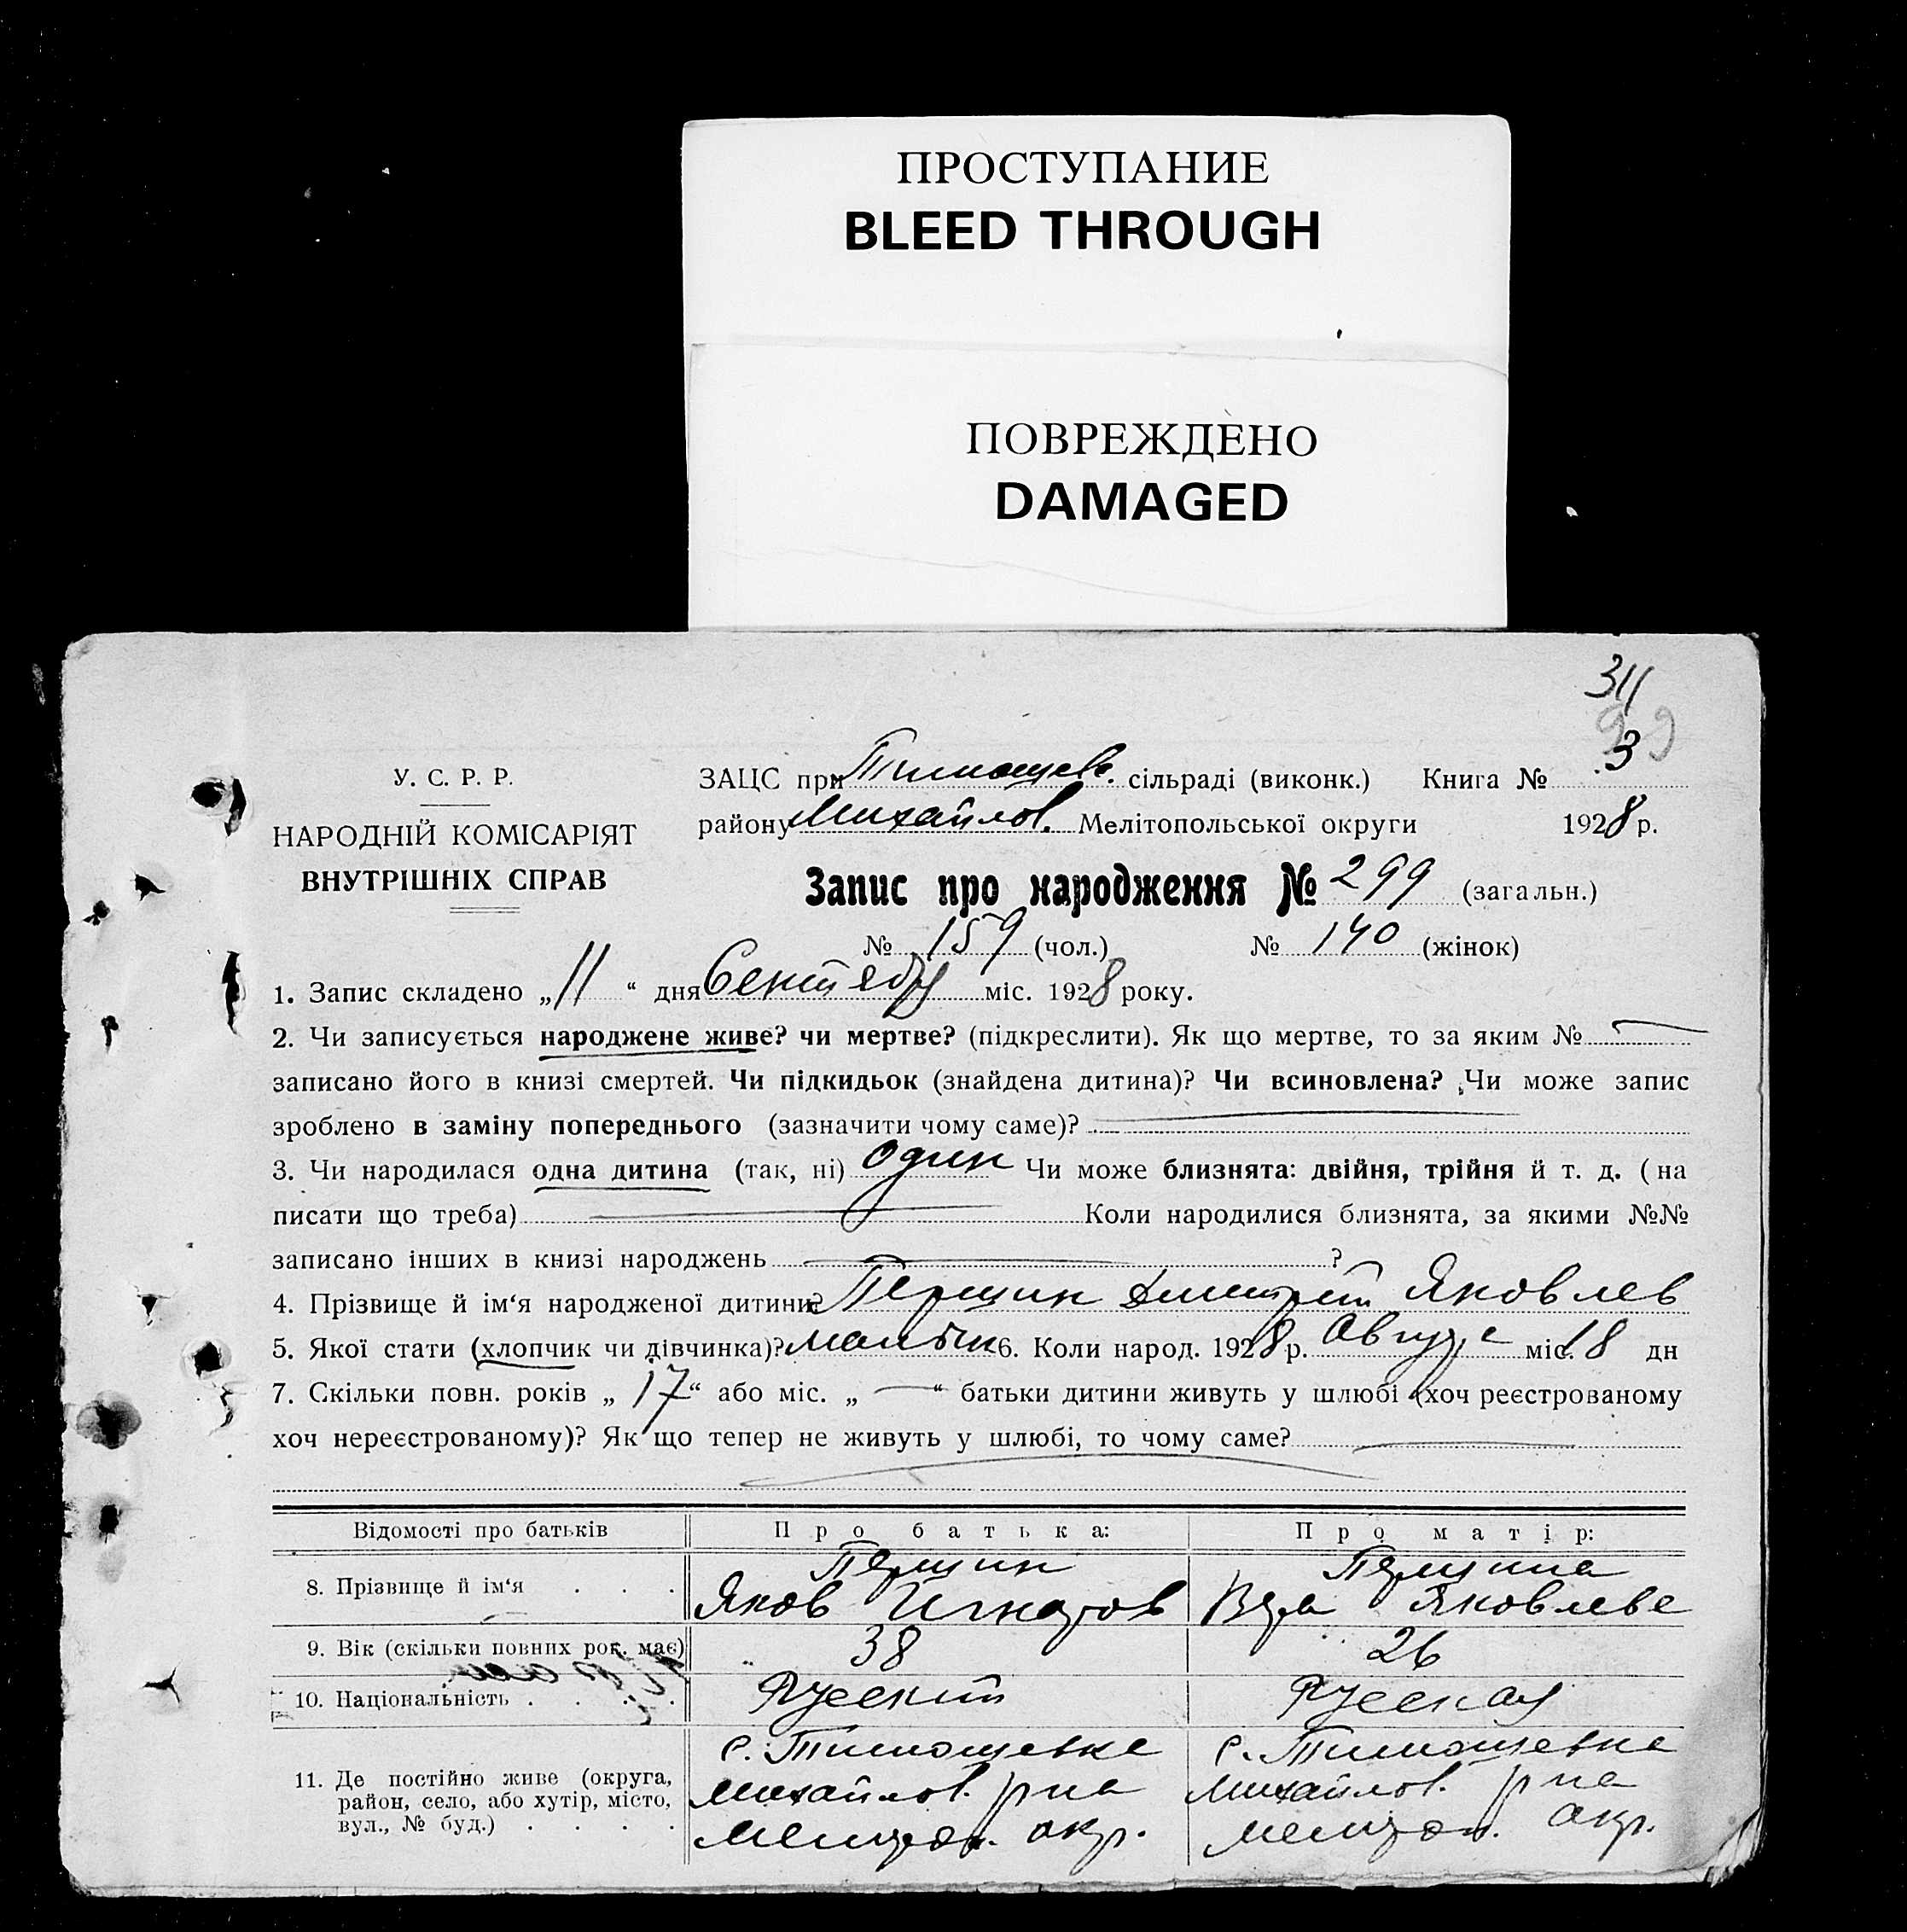 ПРОСТУПАНИЕ
BLEED THROUGH
ПОВРЕЖДЕНО
DAMAGED
311
99
У. С. Р. Р.
НАРОДНІЙ КОМІСАРІЯТ
ВНУТРІШНІХ СПРАВ
ЗАЦС при Тимошев. сільраді (виконк.) Книга № 3
району Михайлов. Мелітопольської округи 1928 р.
Запис про народження № 299 (загальн.)
№ 159 (чол.) № 140 (жінок)
1. Запис складено „11“ дня Сентября міс. 1928 року.
2. Чи записується народжене живе? чи мертве? (підкреслити). Як що мертве, то за яким № —
записано його в книзі смертей. Чи підкидьок (знайдена дитина)? Чи всиновлена? Чи може запис
зроблено в заміну попереднього (зазначити чому саме)? —
3. Чи народилася одна дитина (так, ні) один Чи може близнята: двійня, трійня й т. д. (на
писати що треба) — Коли народилися близнята, за якими №№
записано інших в книзі народжень — ?
4. Прізвище й ім‘я народженої дитини? Першин Дмитрий Яковлев
5. Якої стати (хлопчик чи дівчинка)? мальчик 6. Коли народ. 1928 р. Августа міс. 18 дн
7. Скільки повн. років „17“ або міс. „—“ батьки дитини живуть у шлюбі (хоч реєстрованому
хоч нереєстрованому)? Як що тепер не живуть у шлюбі, то чому саме? —
Відомості про батьків Про батька: Про матір:
8. Прізвище й ім‘я . . . Першин Яков Игнатов Першина Вера Яковлева
9. Вік (скільки повних рок. має) 38 26
10. Національність . . . . Русский Русская
11. Де постійно живе (округа, район, село, або хутір, місто, вул., № буд.) . . . .
с. Тимошевка с. Тимошевка
Михайлов. р на Михайлов. р на
Мелитоп. окр. Мелитоп. окр.